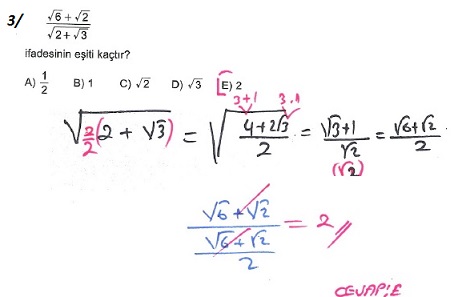 3/ (√6 + √2) / √(2 + √3)
ifadesinin eşiti kaçtır?
A) 1/2 B) 1 C) √2 D) √3 E) 2
3+1 3.1
√(2/2 (2 + √3)) = √((4+2√3)/2) = (√3+1)/√2 = (√6+√2)/2
(√2)
(√6+√2) / ((√6+√2)/2) = 2
CEVAP:E